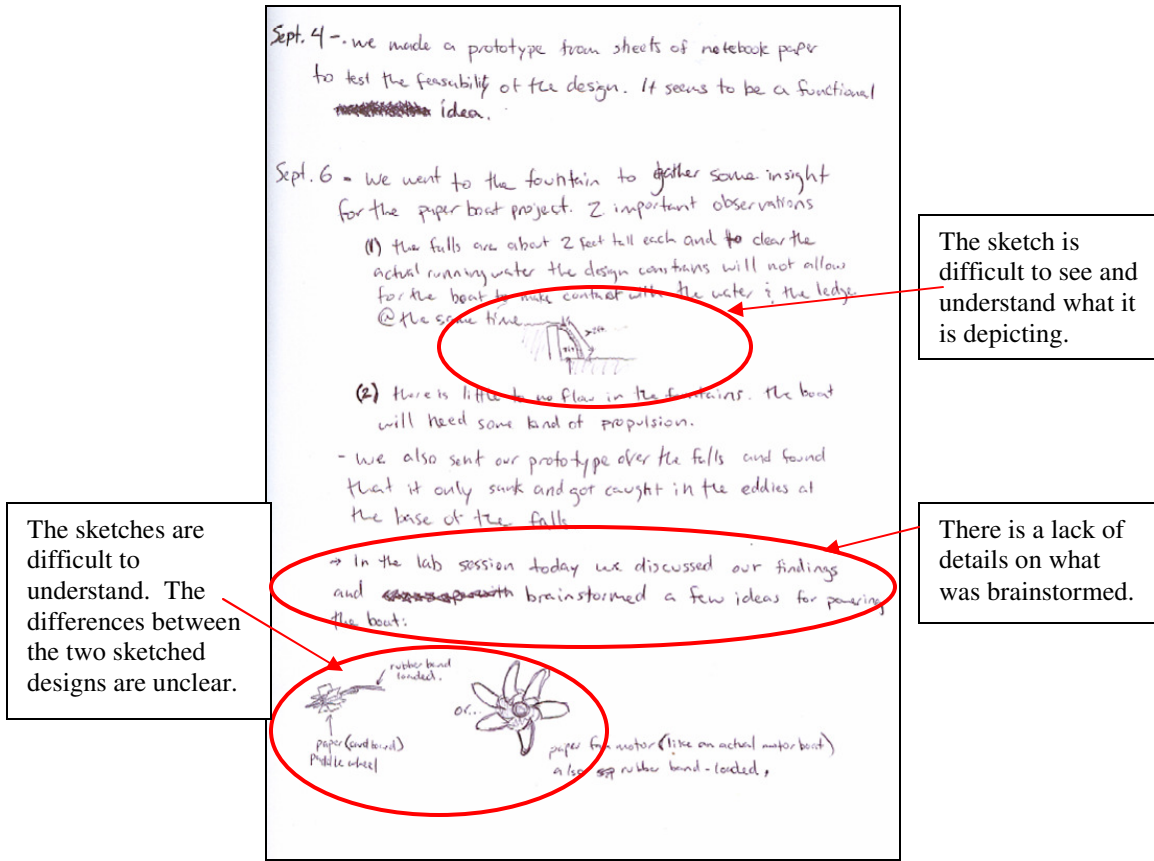 Sept. 4 - . we made a prototype from sheets of notebook paper
to test the feasability of the design. It seems to be a functional
idea.
Sept. 6 - we went to the fountain to gather some insight
for the paper boat project. 2 important observations
(1) the falls are about 2 feet tall each and to clear the
actual running water the design constrains will not allow
for the boat to make contact with the water & the ledge
@ the same time
(2) there is little to no flow in the fountains. the boat
will need some kind of propulsion.
- we also sent our prototype over the falls and found
that it only sunk and got caught in the eddies at
the base of the falls
→ In the lab session today we discussed our findings
and brainstormed a few ideas for powering
the boat:
rubber band
loaded.
paper (cardboard)
paddle wheel
or...
paper fan motor (like an actual motor boat)
also rubber band-loaded,
The sketch is
difficult to see and
understand what it
is depicting.
There is a lack of
details on what
was brainstormed.
The sketches are
difficult to
understand. The
differences between
the two sketched
designs are unclear.